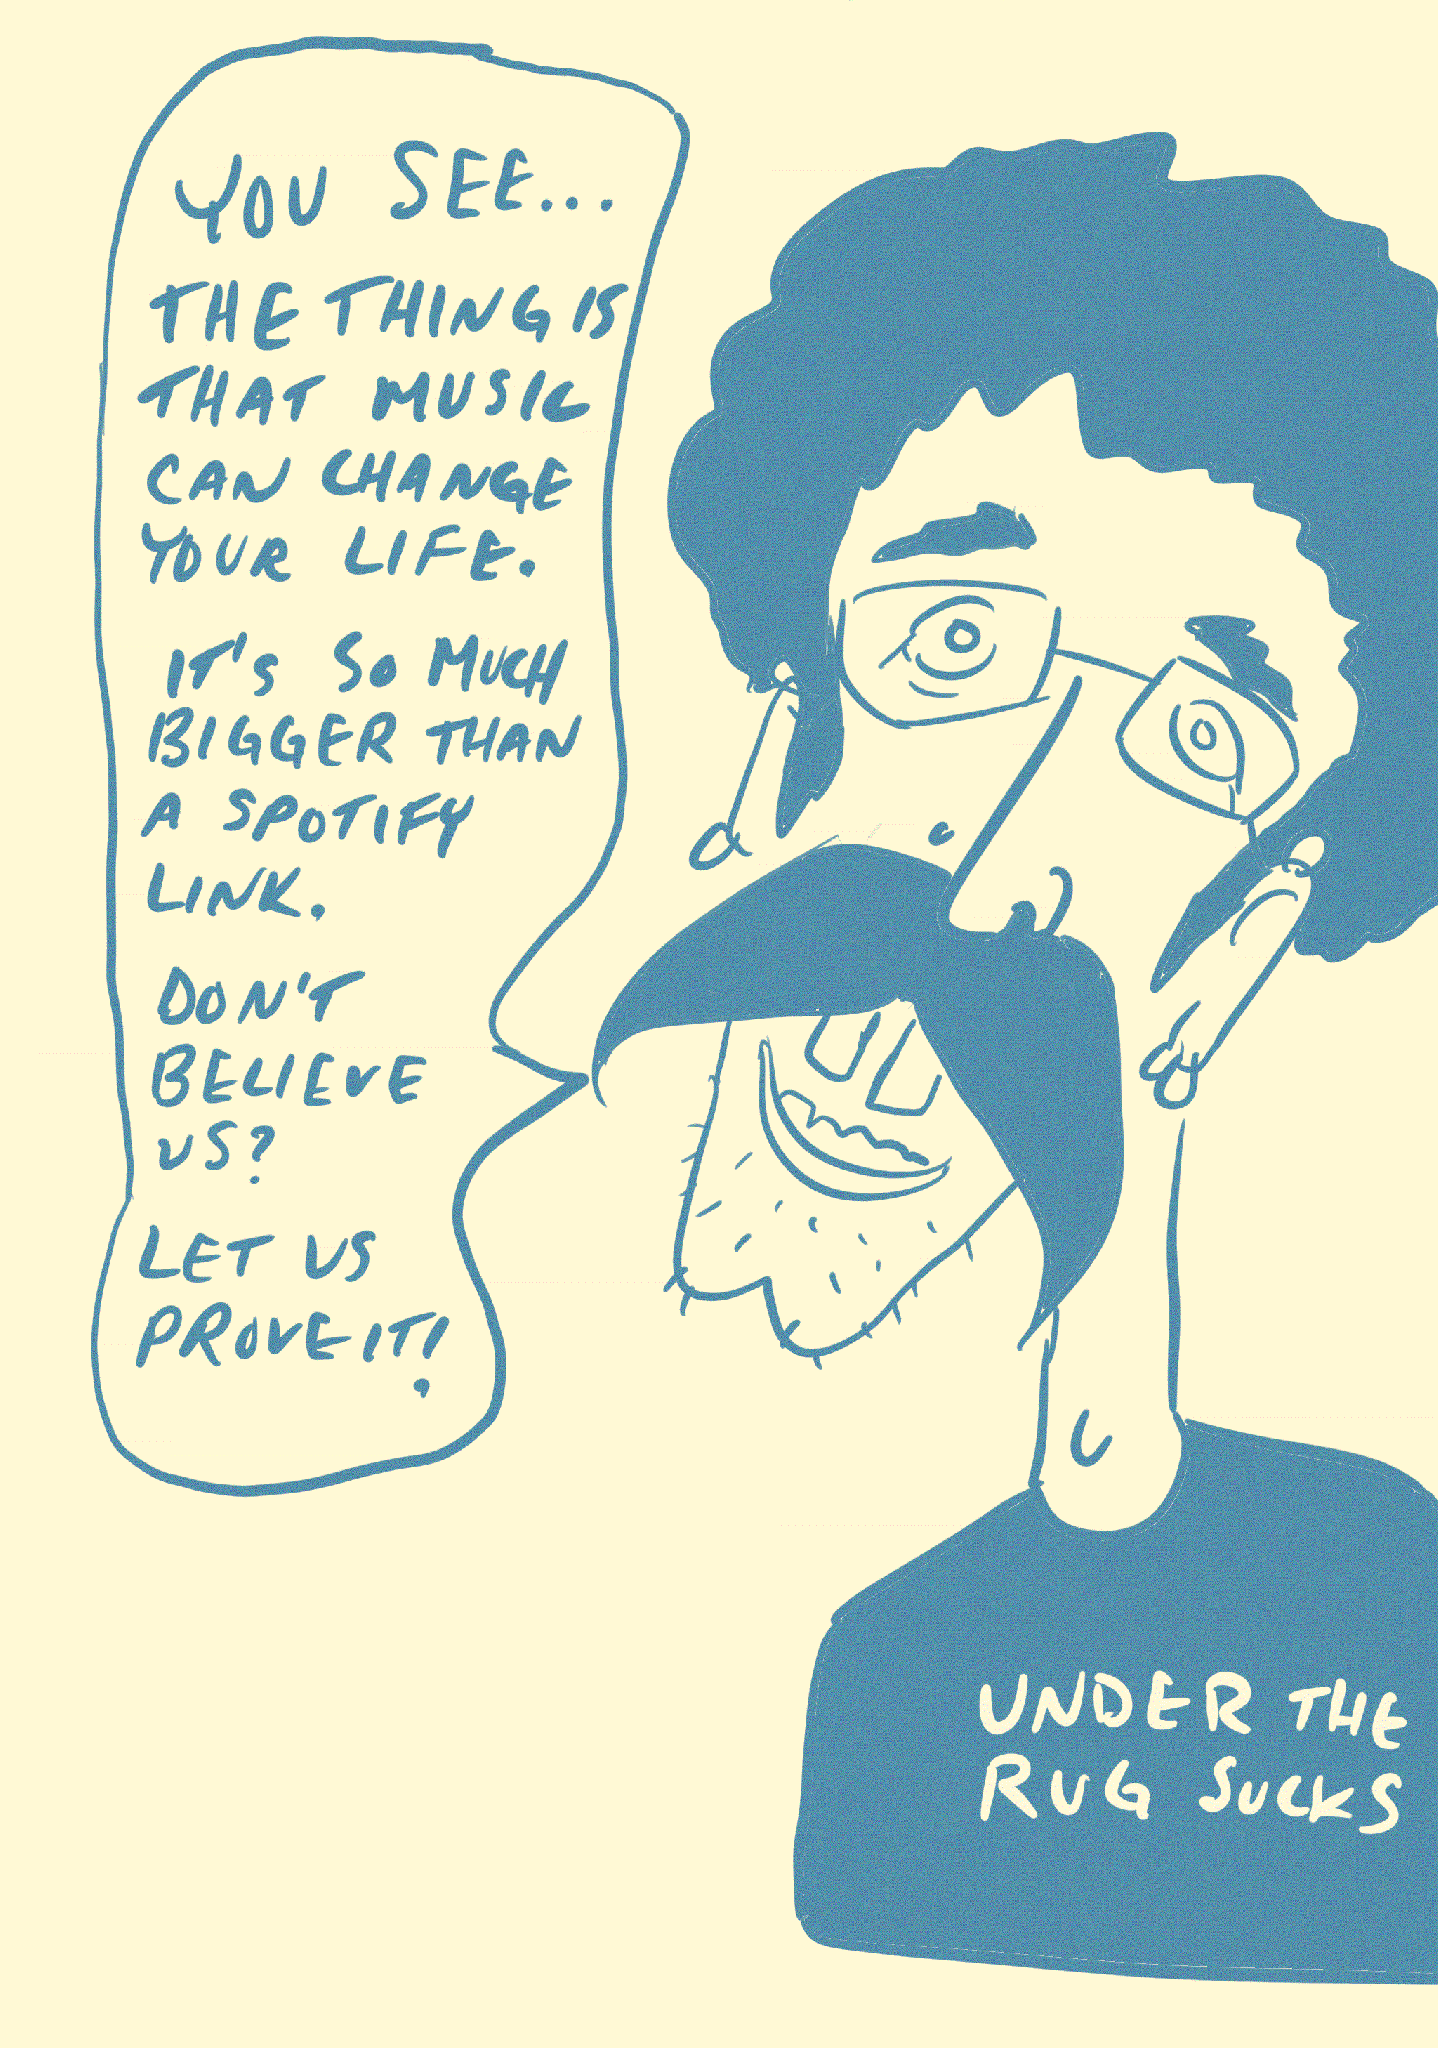 YOU SEE...
THE THING IS
THAT MUSIC
CAN CHANGE
YOUR LIFE.
IT'S SO MUCH
BIGGER THAN
A SPOTIFY
LINK.
DON'T
BELIEVE
US?
LET US
PROVE IT!
UNDER THE
RUG SUCKS